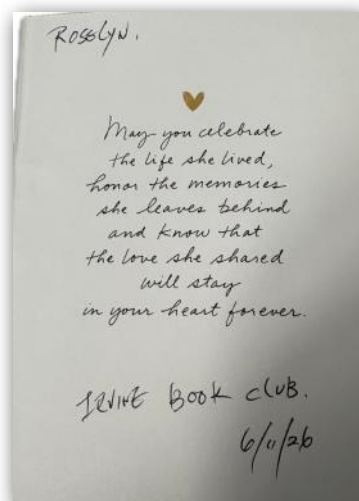 ROSELYN.
May you celebrate
the life she lived,
honor the memories
she leaves behind
and know that
the love she shared
will stay
in your heart forever.
IRVINE BOOK CLUB.
6/11/26